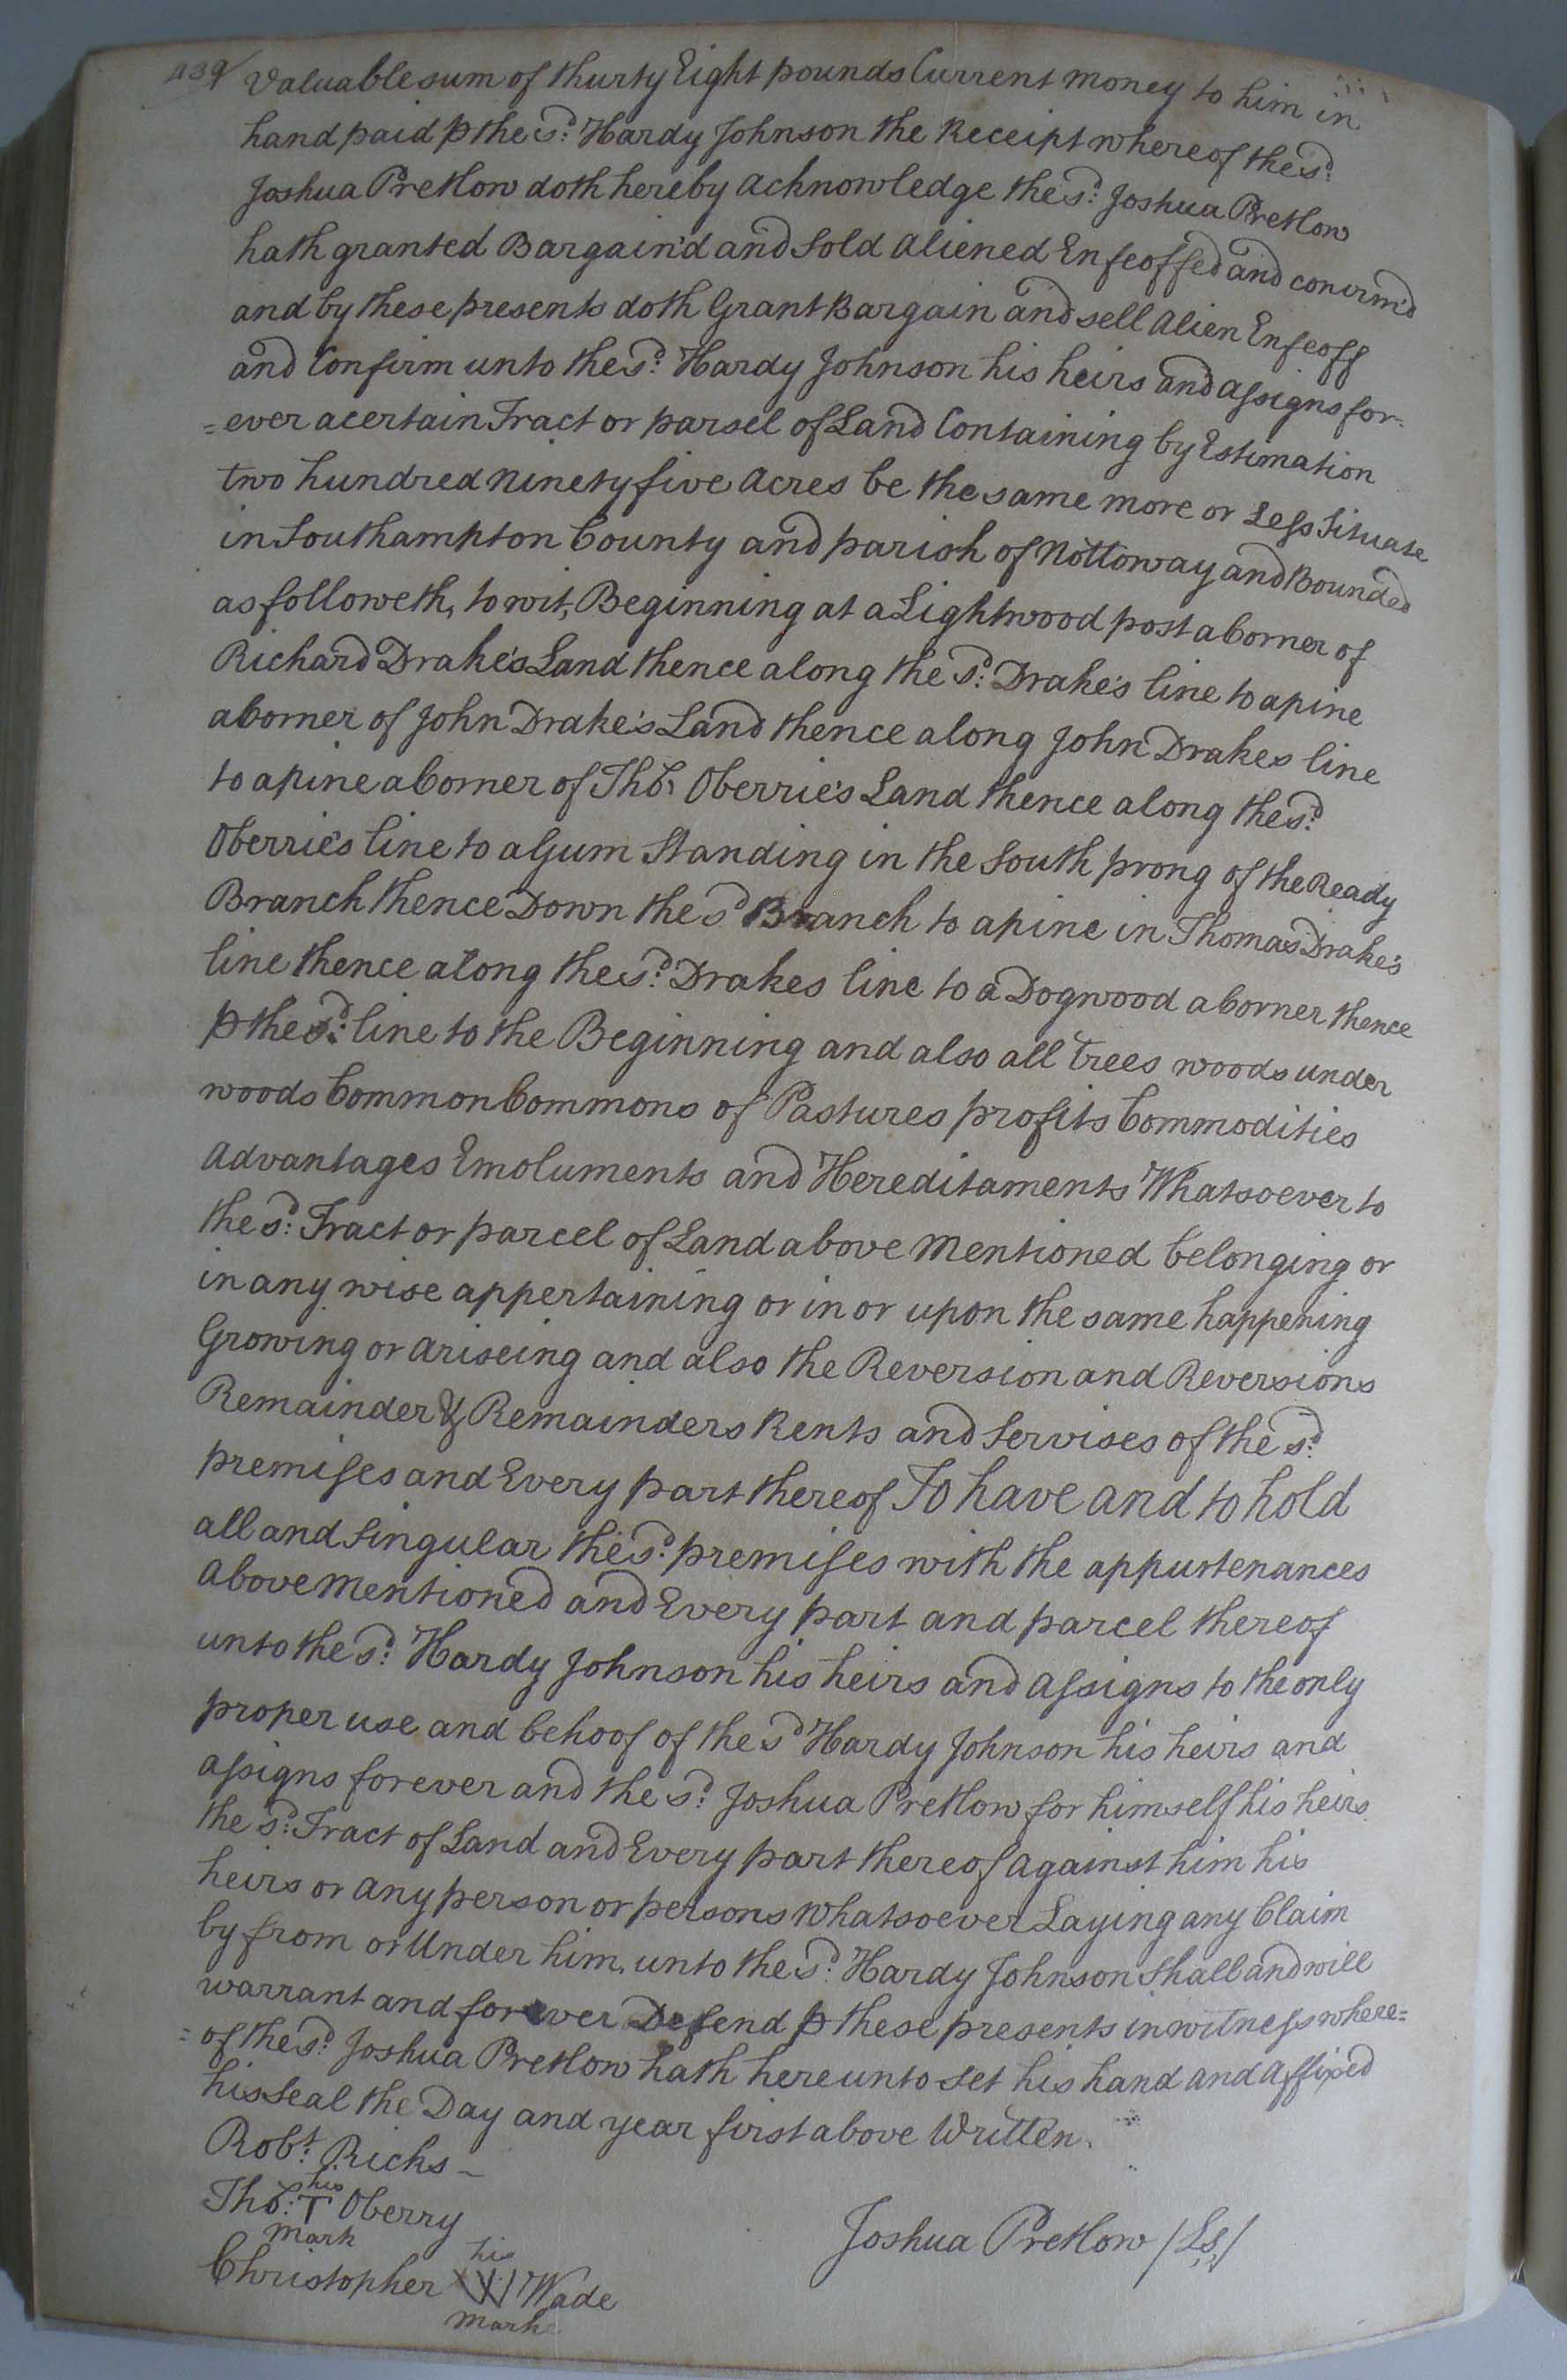 439 Valuable sum of thurty Eight pounds Current money to him in
hand paid p the sd: Hardy Johnson the Receipt whereof the sd:
Joshua Pretlow doth hereby acknowledge the sd: Joshua Pretlow
hath granted Bargain'd and Sold aliened Enfeoffed and conirm'd
and by these presents doth Grant Bargain and sell Alien Enfeoff
and Confirm unto the sd: Hardy Johnson his heirs and assigns for-
=ever a certain Tract or parsel of Land Containing by Estimation
two hundred ninety five Acres be the same more or Less Situate
in Southampton County and parish of Nottoway and Bounded
as followeth, to wit, Beginning at a Lightwood post a Corner of
Richard Drake's Land thence along the sd: Drake's line to a pine
a Corner of John Drake's Land thence along John Drakes line
to a pine a Corner of Thos. Oberrie's Land thence along the sd:
Oberrie's line to a Gum Standing in the South prong of the Ready
Branch thence Down the sd Branch to a pine in Thomas Drake's
line thence along the sd: Drakes line to a Dogwood a Corner thence
p the sd: line to the Beginning and also all trees woods under
woods Common Commons of Pastures profits Commodities
Advantages Emoluments and Hereditaments Whatsoever to
the sd: Tract or parcel of Land above mentioned belonging or
in any wise appertaining or in or upon the same happening
Growing or ariseing and also the Reversion and Reversions
Remainder & Remainders Rents and Servises of the sd:
premises and Every part thereof To have and to hold
all and Singular the sd: premises with the appurtenances
above mentioned and Every part and parcel thereof
unto the sd: Hardy Johnson his heirs and assigns to the only
proper use and behoof of the sd Hardy Johnson his heirs and
assigns forever and the sd: Joshua Pretlow for himself his heirs
the sd: Tract of Land and Every part thereof against him his
heirs or any person or persons whatsoever Laying any Claim
by from or Under him unto the sd: Hardy Johnson Shall and will
warrant and forever Defend p these presents in witness where=
=of the sd: Joshua Pretlow hath hereunto set his hand and affixed
his Seal the Day and year first above Written.
Robt: Ricks
his
Thos: T Oberry
mark
Joshua Pretlow /LS/
his
Christopher W Wade
mark